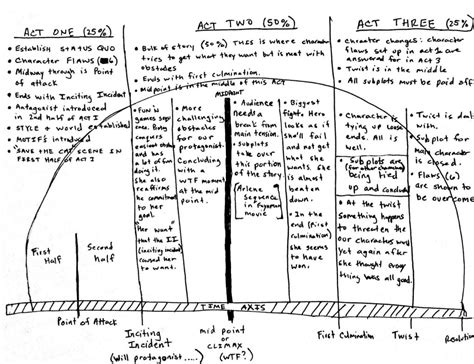 ACT ONE (25%)
• Establish STATUS QUO
• Character FLAWS (6)
• Midway through is Point
of attack
• Ends with Inciting Incident
• Antagonist introduced
in 2nd half of Act I
• STYLE + World established
• MOTIFS introduced
• "SAVE THE CAT" SCENE IN
FIRST HALF of Act I
First
Half
Second
Half
ACT TWO (50%)
• Bulk of story (50%) THIS is where character
tries to get what they want but is met with
obstacles
• Ends with first culmination.
• Midpoint is in the middle of this ACT
MIDPOINT
• FUN N
games seq-
ence. Bing
conquers
ancient state
and has
a lot of
fun doing
it.
• She also
reaffirms
her commitment
to her
goal.
• Her want
that the II
(inciting incident)
caused her
to want.
• More
challenging
obstacles
for our
protagonist.
Concluding
with a
WTF moment
AT the mid
point.
• Audience
needs a
break from
main tension.
• Subplots
take over
this portion
of the story.
[Arlene
sequence
in
movie]
• Biggest
fight. Hero
looks as
if and fail
and not
get what
she wants.
She is
almost
beaten
down.
• In the
end (First
culmination)
she seems
to have
won.
ACT THREE (25%)
• character changes: character
flaws set up in act 1 are
answered for in Act 3
• Twist is in the middle
• All subplots must be paid off
• Character is
tying up
loose ends.
All is
well.
• Subplots are
(for other characters)
being tied
up and conclude
• At the twist
something happens
to threaten the
our character's well
yet again after
she thought every
thing was all good.
• Twist is dealt
with.
• Subplot for
main character
is closed.
• Flaws (6)
are shown to
be overcome
TIME AXIS
Point of Attack
Inciting
Incident
(Will protagonist.....)
mid point
or
CLIMAX
(WTF?)
First Culmination
Twist
Resolution